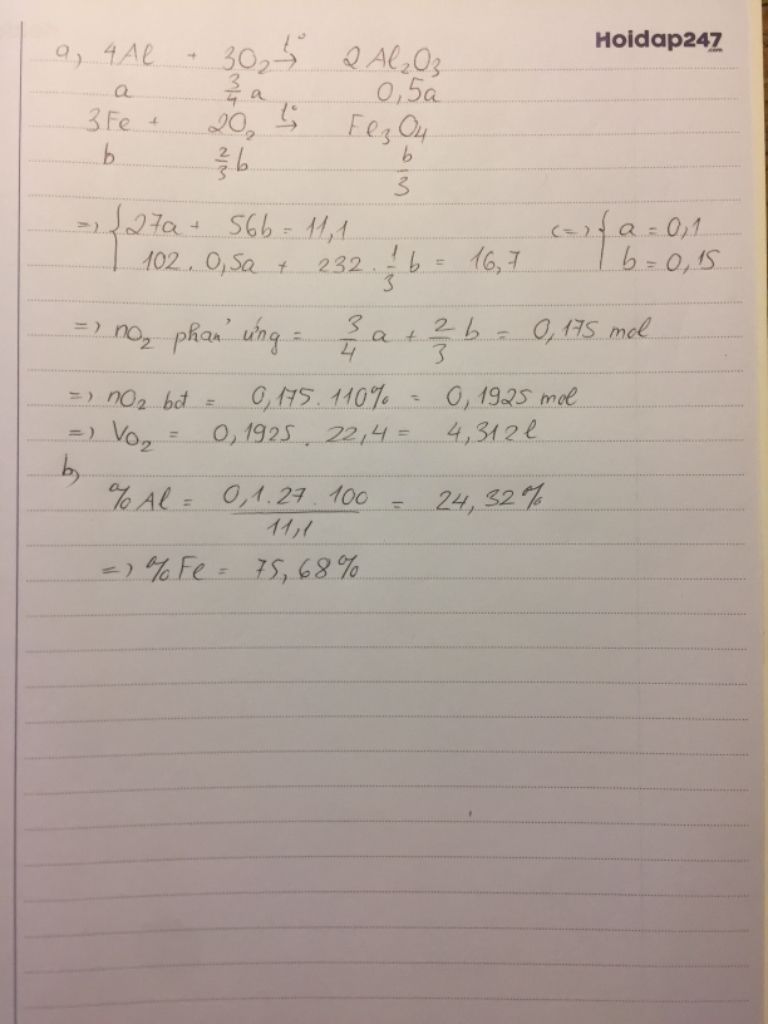 Hoidap247.com
a, 4Al + 3O₂ t°→ 2Al₂O₃
a 3/4 a 0,5a
3Fe + 2O₂ t°→ Fe₃O₄
b 2/3 b b/3
=> { 27a + 56b = 11,1 <=> { a = 0,1
102 . 0,5a + 232 . 1/3 b = 16,7 b = 0,15
=> nO₂ phản ứng = 3/4 a + 2/3 b = 0,175 mol
=> nO₂ bđ = 0,175 . 110% = 0,1925 mol
=> VO₂ = 0,1925 . 22,4 = 4,312l
b,
%Al = 0,1.27.100/11,1 = 24,32%
=> %Fe = 75,68%